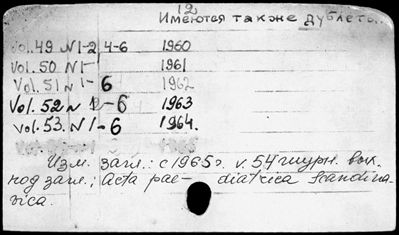 12
Имеются также дублеты.
Vol. 49 N 1-2, 4-6 1960
Vol. 50 N 1- 1961
Vol. 51 N 1-6 1962
Vol. 52 N 1-6 1963
Vol. 53. N 1-6 1964.
Изм. загл.: с 1965 г. v. 54 журн. вых.
под загл.; Acta pae- diatrica Scandina-
vica.